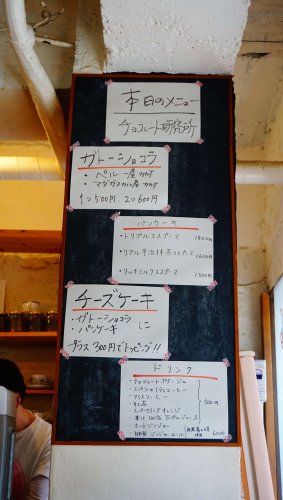 本日のメニュー
チョコレート研究所
ガトーショコラ
・ペルー産カカオ
・マダガスカル産カカオ
1コ500円、2コ600円
パンケーキ
・トリプルエスプーマ
1800円
・リアル宇治抹茶エスプーマ
1600円
・リッチミルクエスプーマ
1500円
チーズケーキ
・ガトーショコラ
・パンケーキ に
プラス300円でトッピング!!
ドリンク
・チョコレートポタージュ
・スペシャリティコーヒー
・アイスコーヒー
・紅茶
・スパークリングオレンジ
・果汁100%アップルジュース
・ホットジンジャー
・自家製ジンジャーエール
500円
600円